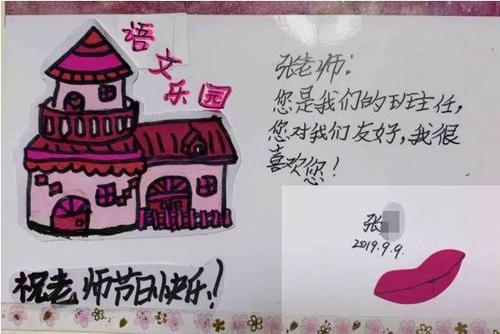 语文乐园
祝老师节日快乐!
张老师:
您是我们的班主任,
您对我们友好,我很
喜欢您!
张
2019.9.9.